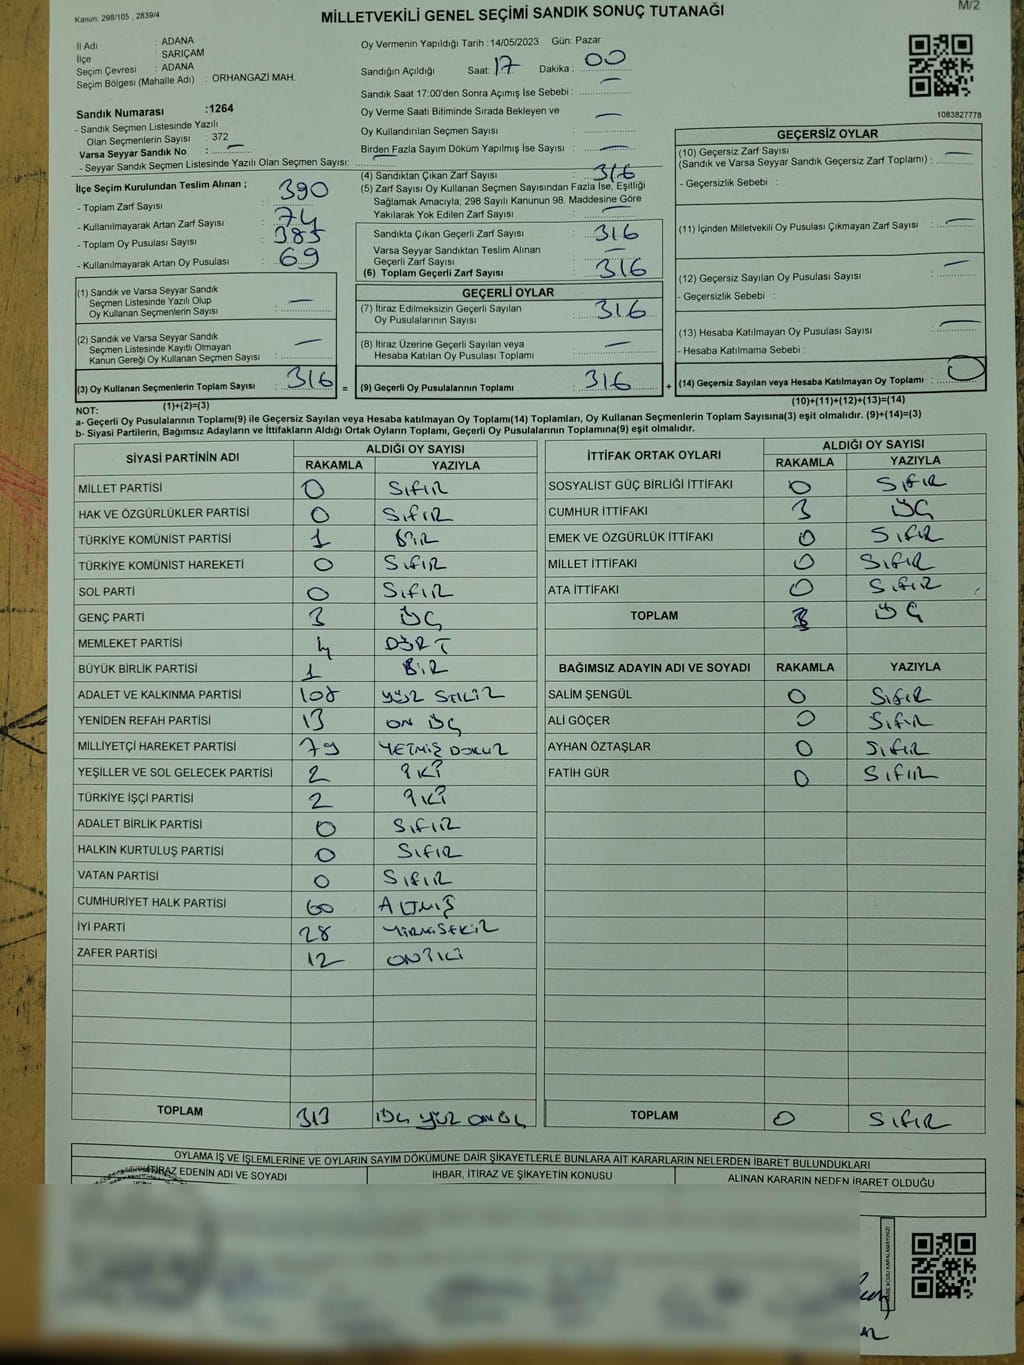 Kanun, 298/105 , 2839/4
MİLLETVEKİLİ GENEL SEÇİMİ SANDIK SONUÇ TUTANAĞI
M/2
İl Adı : ADANA
İlçe : SARIÇAM
Seçim Çevresi : ADANA
Seçim Bölgesi (Mahalle Adı) : ORHANGAZİ MAH.
Oy Vermenin Yapıldığı Tarih :14/05/2023 Gün: Pazar
Sandığın Açıldığı Saat: 17 Dakika : 00
Sandık Saat 17:00'den Sonra Açımış İse Sebebi : —
Oy Verme Saati Bitiminde Sırada Bekleyen ve
Oy Kullandırılan Seçmen Sayısı : —
Birden Fazla Sayım Döküm Yapılmış İse Sayısı : —
1083827778
Sandık Numarası :1264
- Sandık Seçmen Listesinde Yazılı
Olan Seçmenlerin Sayısı : 372
Varsa Seyyar Sandık No : —
- Seyyar Sandık Seçmen Listesinde Yazılı Olan Seçmen Sayısı: —
İlçe Seçim Kurulundan Teslim Alınan ;
- Toplam Zarf Sayısı : 390
- Kullanılmayarak Artan Zarf Sayısı : 74
- Toplam Oy Pusulası Sayısı : 385
- Kullanılmayarak Artan Oy Pusulası : 69
(1) Sandık ve Varsa Seyyar Sandık
Seçmen Listesinde Yazılı Olup
Oy Kullanan Seçmenlerin Sayısı : —
(2) Sandık ve Varsa Seyyar Sandık
Seçmen Listesinde Kayıtlı Olmayan
Kanun Gereği Oy Kullanan Seçmen Sayısı : —
(3) Oy Kullanan Seçmenlerin Toplam Sayısı : 316 =
(1)+(2)=(3)
(4) Sandıktan Çıkan Zarf Sayısı : 316
(5) Zarf Sayısı Oy Kullanan Seçmen Sayısından Fazla İse, Eşitliği
Sağlamak Amacıyla; 298 Sayılı Kanunun 98. Maddesine Göre
Yakılarak Yok Edilen Zarf Sayısı : —
Sandıkta Çıkan Geçerli Zarf Sayısı : 316
Varsa Seyyar Sandıktan Teslim Alınan
Geçerli Zarf Sayısı : —
(6) Toplam Geçerli Zarf Sayısı : 316
GEÇERLİ OYLAR
(7) İtiraz Edilmeksizin Geçerli Sayılan
Oy Pusulalarının Sayısı : 316
(8) İtiraz Üzerine Geçerli Sayılan veya
Hesaba Katılan Oy Pusulası Toplamı : —
(9) Geçerli Oy Pusulalarının Toplamı : 316 +
GEÇERSİZ OYLAR
(10) Geçersiz Zarf Sayısı
(Sandık ve Varsa Seyyar Sandık Geçersiz Zarf Toplamı) : —
- Geçersizlik Sebebi :
(11) İçinden Milletvekili Oy Pusulası Çıkmayan Zarf Sayısı : —
(12) Geçersiz Sayılan Oy Pusulası Sayısı : —
- Geçersizlik Sebebi :
(13) Hesaba Katılmayan Oy Pusulası Sayısı : —
- Hesaba Katılmama Sebebi :
(14) Geçersiz Sayılan veya Hesaba Katılmayan Oy Toplamı : 0
(10)+(11)+(12)+(13)=(14)
NOT:
a- Geçerli Oy Pusulalarının Toplamı(9) ile Geçersiz Sayılan veya Hesaba katılmayan Oy Toplamı(14) Toplamları, Oy Kullanan Seçmenlerin Toplam Sayısına(3) eşit olmalıdır. (9)+(14)=(3)
b- Siyasi Partilerin, Bağımsız Adayların ve İttifakların Aldığı Ortak Oyların Toplamı, Geçerli Oy Pusulalarının Toplamına(9) eşit olmalıdır.
SİYASİ PARTİNİN ADI
ALDIĞI OY SAYISI
RAKAMLA YAZIYLA
MİLLET PARTİSİ 0 SIFIR
HAK VE ÖZGÜRLÜKLER PARTİSİ 0 SIFIR
TÜRKİYE KOMÜNİST PARTİSİ 1 BİR
TÜRKİYE KOMÜNİST HAREKETİ 0 SIFIR
SOL PARTİ 0 SIFIR
GENÇ PARTİ 3 ÜÇ
MEMLEKET PARTİSİ 4 DÖRT
BÜYÜK BİRLİK PARTİSİ 1 BİR
ADALET VE KALKINMA PARTİSİ 108 YÜZ SEKİZ
YENİDEN REFAH PARTİSİ 13 ON ÜÇ
MİLLİYETÇİ HAREKET PARTİSİ 79 YETMİŞ DOKUZ
YEŞİLLER VE SOL GELECEK PARTİSİ 2 İKİ
TÜRKİYE İŞÇİ PARTİSİ 2 İKİ
ADALET BİRLİK PARTİSİ 0 SIFIR
HALKIN KURTULUŞ PARTİSİ 0 SIFIR
VATAN PARTİSİ 0 SIFIR
CUMHURİYET HALK PARTİSİ 60 ALTMIŞ
İYİ PARTİ 28 YİRMİSEKİZ
ZAFER PARTİSİ 12 ONİKİ
TOPLAM 313 ÜÇ YÜZ ON ÜÇ
İTTİFAK ORTAK OYLARI
ALDIĞI OY SAYISI
RAKAMLA YAZIYLA
SOSYALİST GÜÇ BİRLİĞİ İTTİFAKI 0 SIFIR
CUMHUR İTTİFAKI 3 ÜÇ
EMEK VE ÖZGÜRLÜK İTTİFAKI 0 SIFIR
MİLLET İTTİFAKI 0 SIFIR
ATA İTTİFAKI 0 SIFIR
TOPLAM 3 ÜÇ
BAĞIMSIZ ADAYIN ADI VE SOYADI RAKAMLA YAZIYLA
SALİM ŞENGÜL 0 SIFIR
ALİ GÖÇER 0 SIFIR
AYHAN ÖZTAŞLAR 0 SIFIR
FATİH GÜR 0 SIFIR
TOPLAM 0 SIFIR
OYLAMA İŞ VE İŞLEMLERİNE VE OYLARIN SAYIM DÖKÜMÜNE DAİR ŞİKAYETLERLE BUNLARA AİT KARARLARIN NELERDEN İBARET BULUNDUKLARI
İTİRAZ EDENİN ADI VE SOYADI
İHBAR, İTİRAZ VE ŞİKAYETİN KONUSU
ALINAN KARARIN NEDEN İBARET OLDUĞU